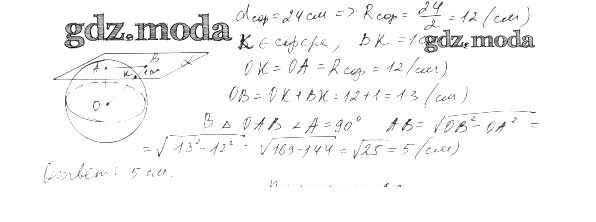 gdz.moda
dсф = 24 см => Rсф = 24/2 = 12 (см)
K ∈ сфере, BK = 1
gdz.moda
OK = OA = Rсф = 12 (см)
OB = OK + BK = 12 + 1 = 13 (см)
В △ OAB ∠A = 90° AB = √OB² - OA² =
= √13² - 12² = √169 - 144 = √25 = 5 (см)
Ответ: 5 см.
A B K α
O